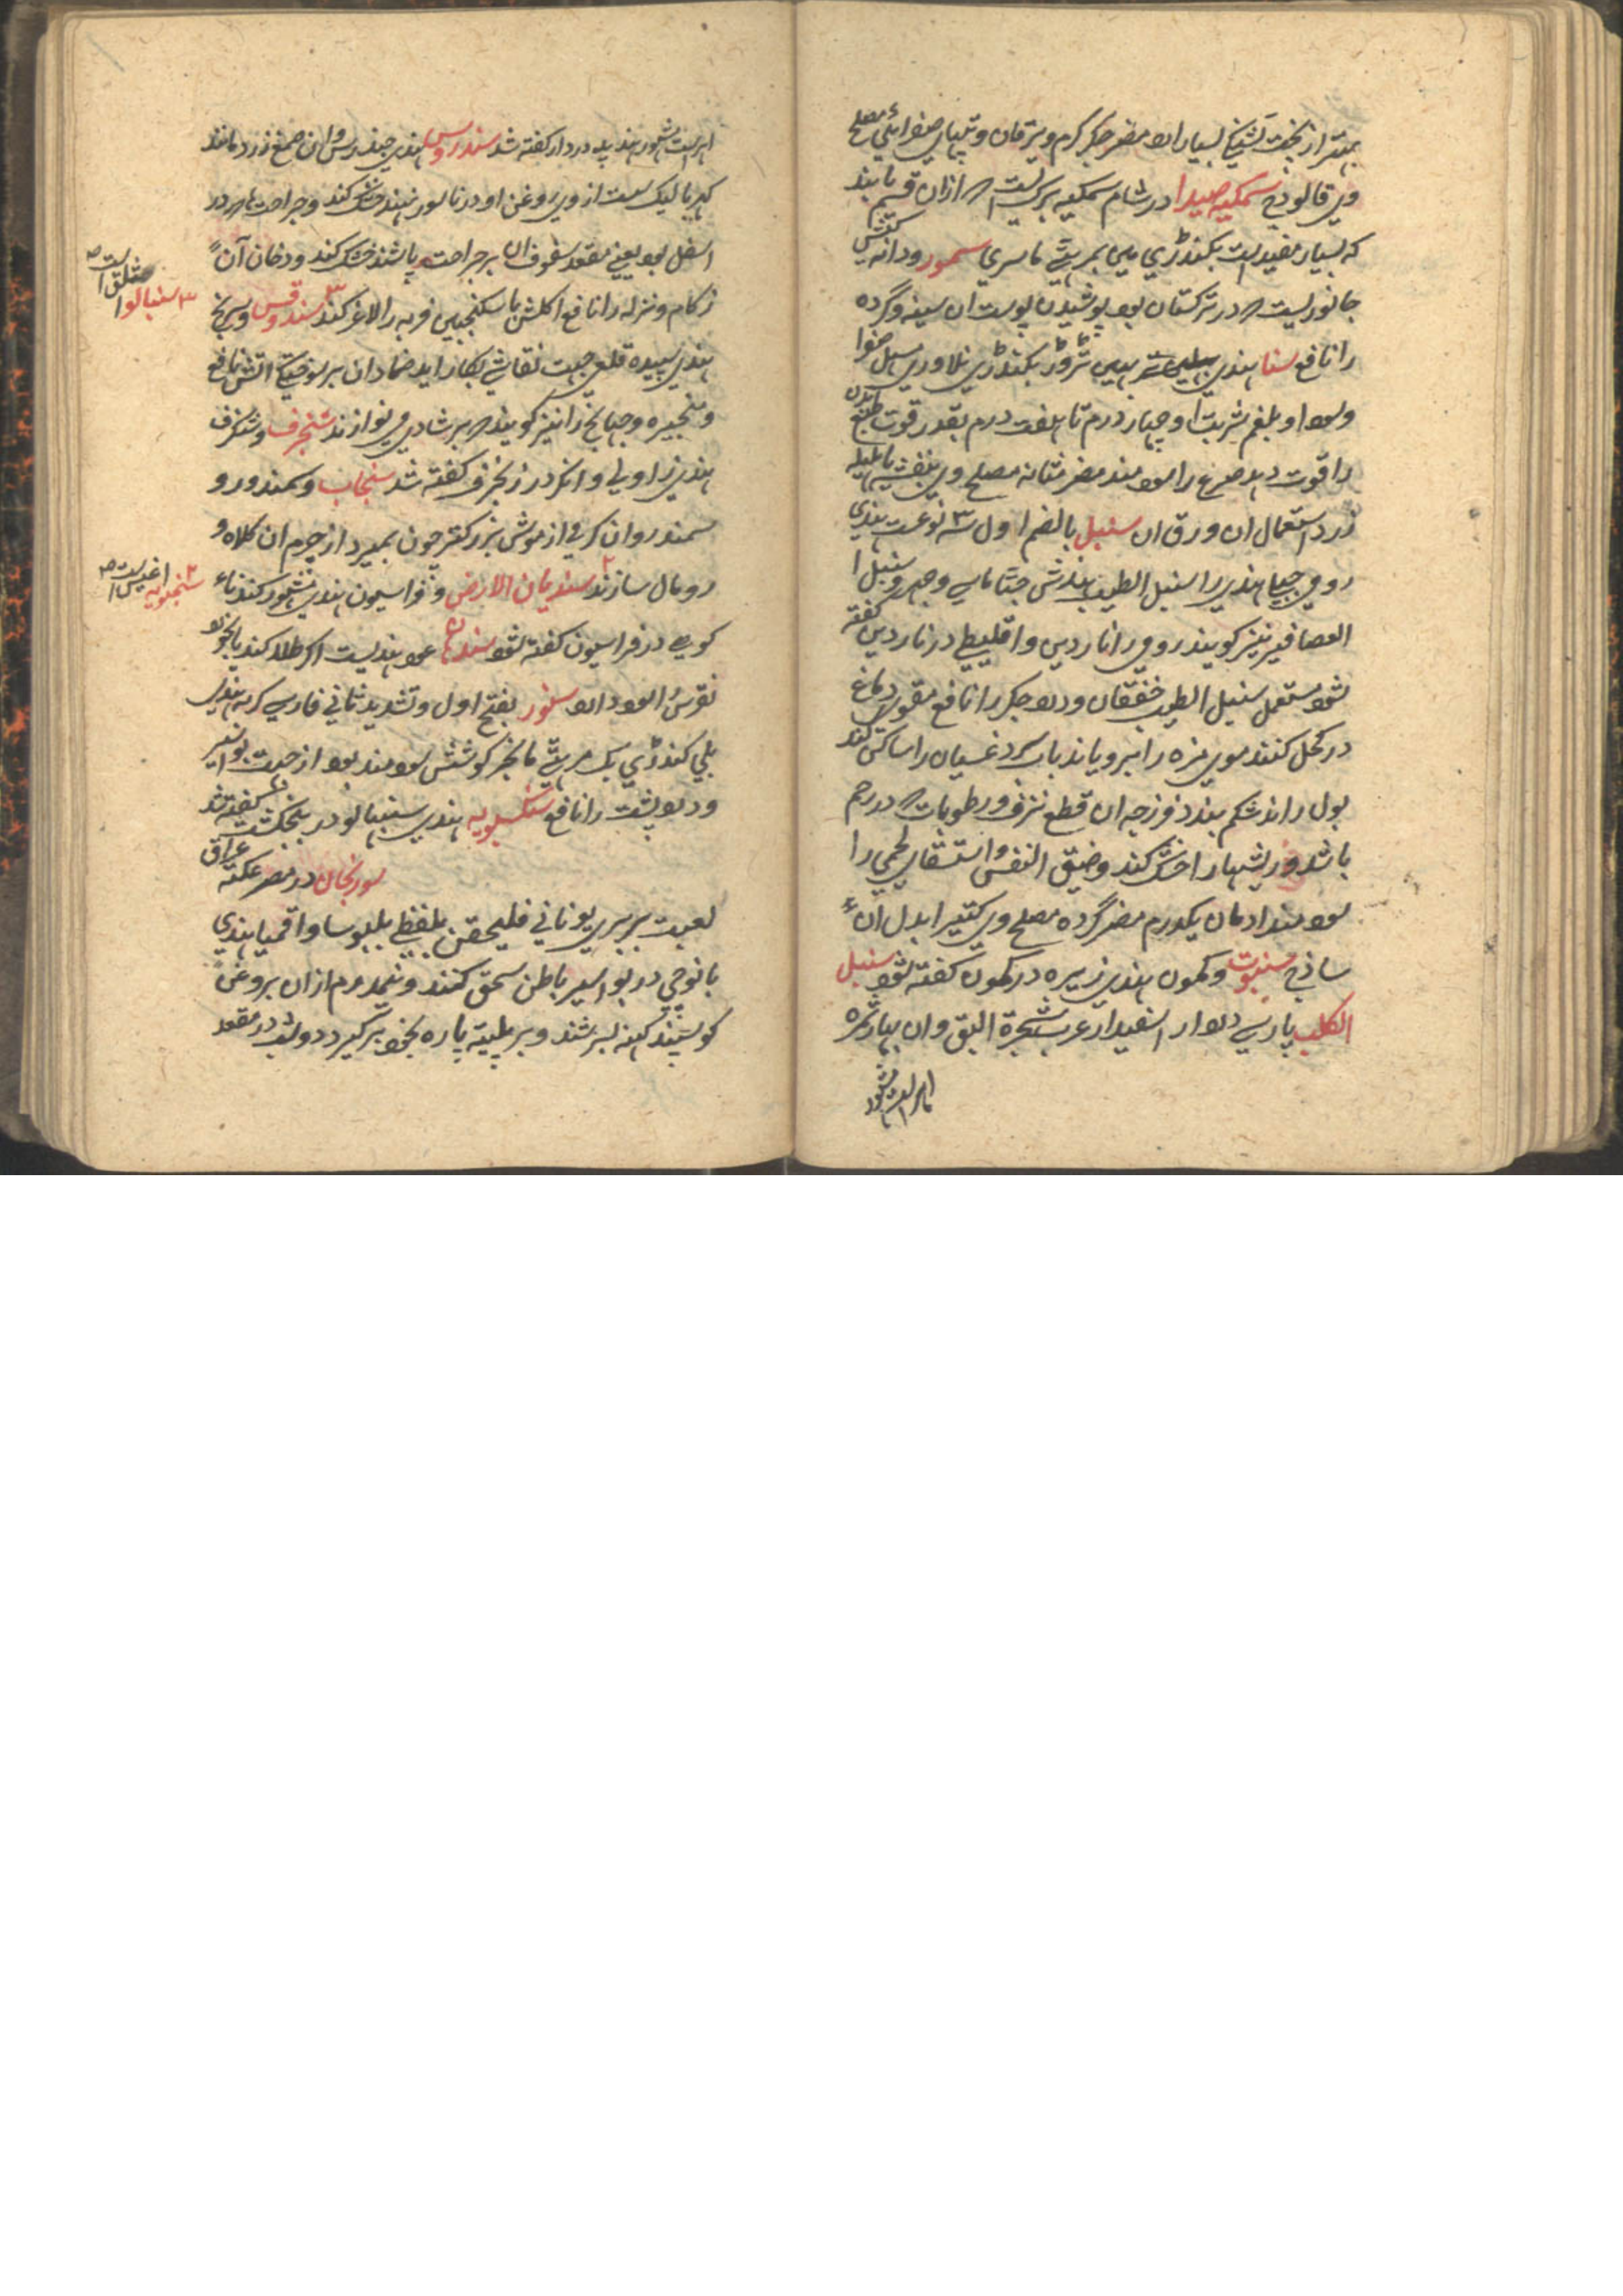 بهتر از پخت تشنگی بسیار ارد مضر جگر گرم و یرقان و تپهای صفرائی مصلح
وی فالوذج سمکیه صیدا در شام سمکیه برکیست که ازان قسم یابند
که بسیار مفیدست بکندڑی مین بمرہٹے ماسری سمور ودانه کشی
جانوریست که در ترکستان بود پوشیدن پوست ان سینه و گرده
را نافع سنا هندی تڑوڑ بکندڑی نلاوری مسهل صفرا
وسودا و بلغم شربت او چهار درم تا هفت درم بقدر قوت طبع
را قوت دهد صرع را سودمند مضر مثانه مصلح وی بنفشه یا هلیله
زرد استعمال ان ورق ان سنبل بالضم اول ۳ نوعست هندی
رومی جبلی هندی را سنبل الطیب هندش جٹا ماسی وچهر و سنبل
العصافیر نیز گویند رومی را ناردین و اقلیطی در ناردین گفته
شود مستعمل سنبل الطیب خفقان ودرد جگر را نافع مقوی دماغ
در کحل کنند موی مژه را برویاند باب سرد غسیان را ساکن کند
بول راند شکم بندد فرزجه ان قطع نزف ورطوبات که در رحم
باشد و ریشها را خشک کند وضیق النفس و استسقای لحمی را
سودمند ادمان یکدرم مضر گرده مصلح وی کتیرا بدل ان
ساذج سنوت وکمون هندی زیره در کمون گفته شود سنبل
الکلب پارسی دردار اسفیدار عرب شجرة البق وان بهار ثمره
امرلهست مشهور
امرلهست مشهور هند پد دردار گفته شد سندروس هندی چندرس وان صمغ زرد مانند
کهربا لیک سست ازوی روغن او در ناسور نهند خشک کند وجراحتها که در
اسفل بود یعنی مقعد سفوف ان بر جراحت پاشند خشک کند ودخان آن
زکام ونزله را نافع اکلش با سکنجبین فربه را لاغر کند سندوقس وسریخ
هندی سپیده قلعی جهت نقاشی بکار اید ضماد ان بر سوختگی اتش نافع
وسنجیره وجهانج را نیز گویند که بر شادی می نوازند شنجرف وشنگرف
هندی زاولی وانکر در زنجرف گفته شد سنجاب وسمندورو
سمندروان کرمی از موش بزرکتر چون بمیرد از چرم ان کلاه و
رومال سازند سندیان الارض وفراسیون هندی مشهور کندناء
کوهی در فراسیون گفته شود سندهان عود هندیست اکر طلا کند بالخود
نقرس را سود دارد سنور بفتح اول وتشدید ثانی فارسی گربه هندی
بلی کندڑی بک مرہٹے مانجر گوشتش سودمند بود از جهت بواسیر
ودرد پشت را نافع سنگسبویه هندی سنبهالو در پنجکشت گفته شد
سورنجان در مصر عکنه عراق
لعبت بربری یونانی فلیحقن بلفظی بلبوسا واقمیا هندی
بانوجی در بواسیر باطن سحق کنند ونیمدرم ازان بروغن
گوسپند کهنه بسرشند وبر پلیته پاره بخود برگیرد دو شب در مقعد
مثلق است
۳ سنبالو
۲ سنجبویه اغیس است